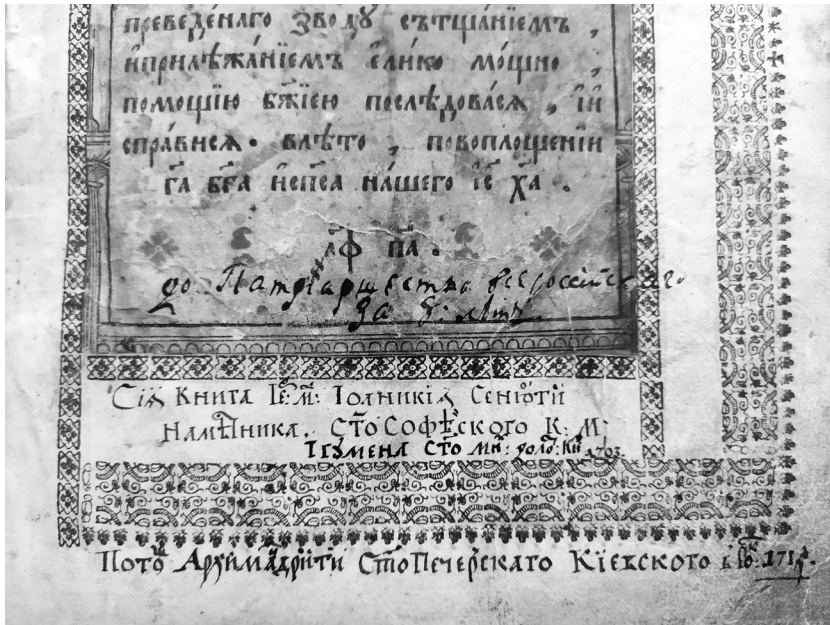 преведе́наго зводу сътща́нїемъ ,
и҆прилѣжа́нїемъ є҆ли́ко мо́щно ,
помощїю бж҃їею послѣ́довася , ӥ҆и
спра́вися . влѣто , повоплощенїи
гд҃а бг҃а и҆сп҃са на́шего і҆с҃ х҃а .
҂аф па҃ .
до Патріаршества всеросїйскаго
за 8: лѣтъ
Сїѧ Книга Іер̾м: Іоаникїѧ Сенютѣ
Намѣсника. Сто Софѣского К: М:
Ігумена Сто Мих: Золо: Ки 1703.
Пото Архимадрити Сто Печерскаго Кїевского в Ро: 171